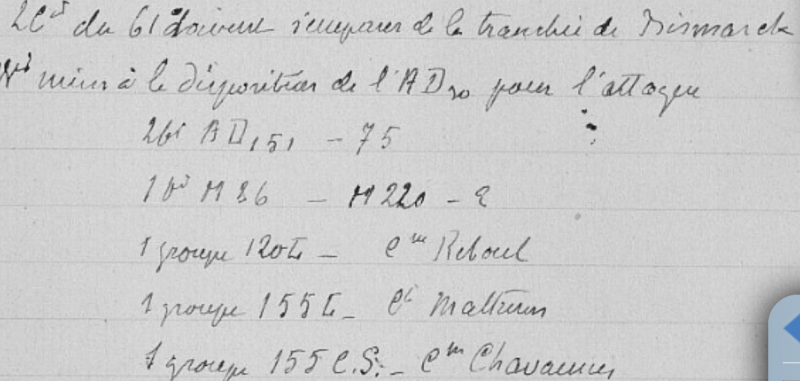 2 Cies du 61 doivent s'emparer de la tranchée de Bismarck
mises à la disposition de l'AD30 pour l'attaque :
AD151 - 75
M86 - M220 -
1 groupe 120L - Cm Reboul
1 groupe 155L - Ct
1 groupe 155 C.S. - Cm